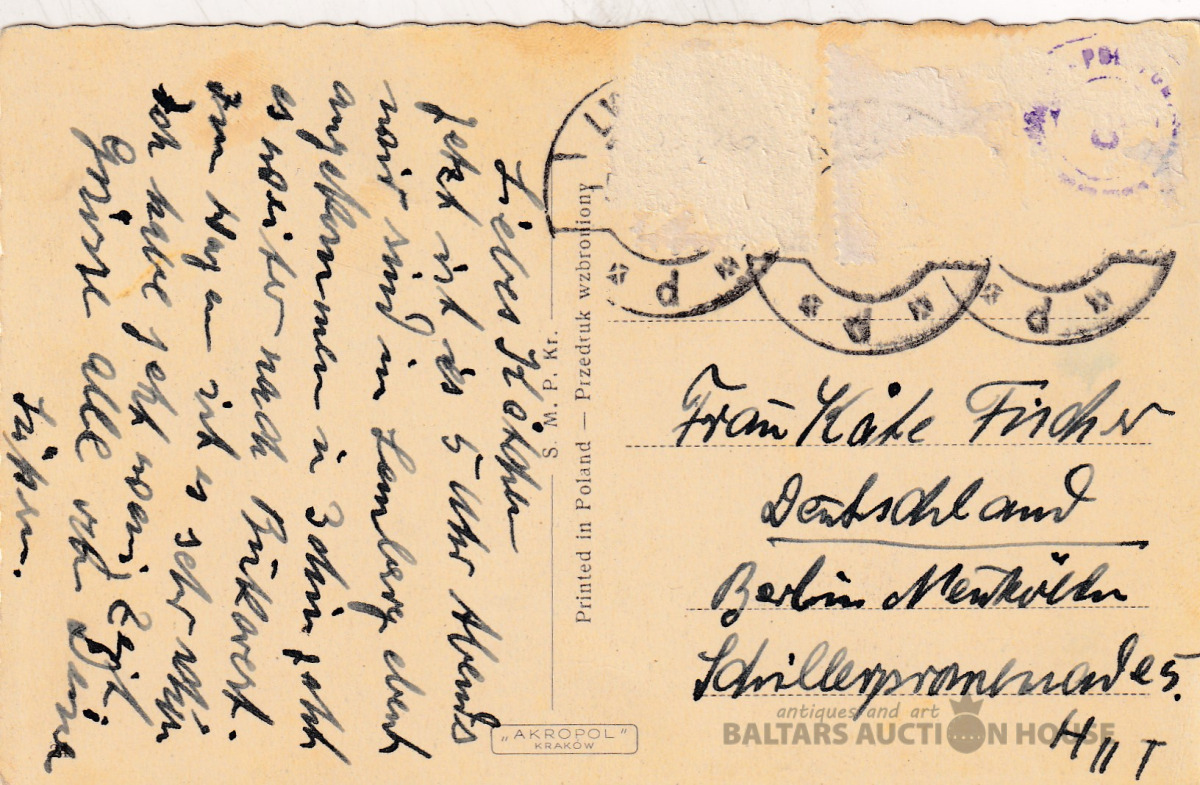 Liebes Kätchen
jetzt ist es 5 Uhr Abends
wir sind in Lemberg eben
angekommen u 
es weiter nach Bukarest.
Im Wagen ist es sehr
Ich habe jetzt wenig Zeit.
Grüsse alle von Deine
S. M. P. Kr.
Printed in Poland — Przedruk wzbroniony
"AKROPOL"
KRAKÓW
Frau Käte Fischer
Deutschland
Berlin Neukölln
Schillerpromenade 5.
H II T
antiques and art
BALTARS AUCTION HOUSE